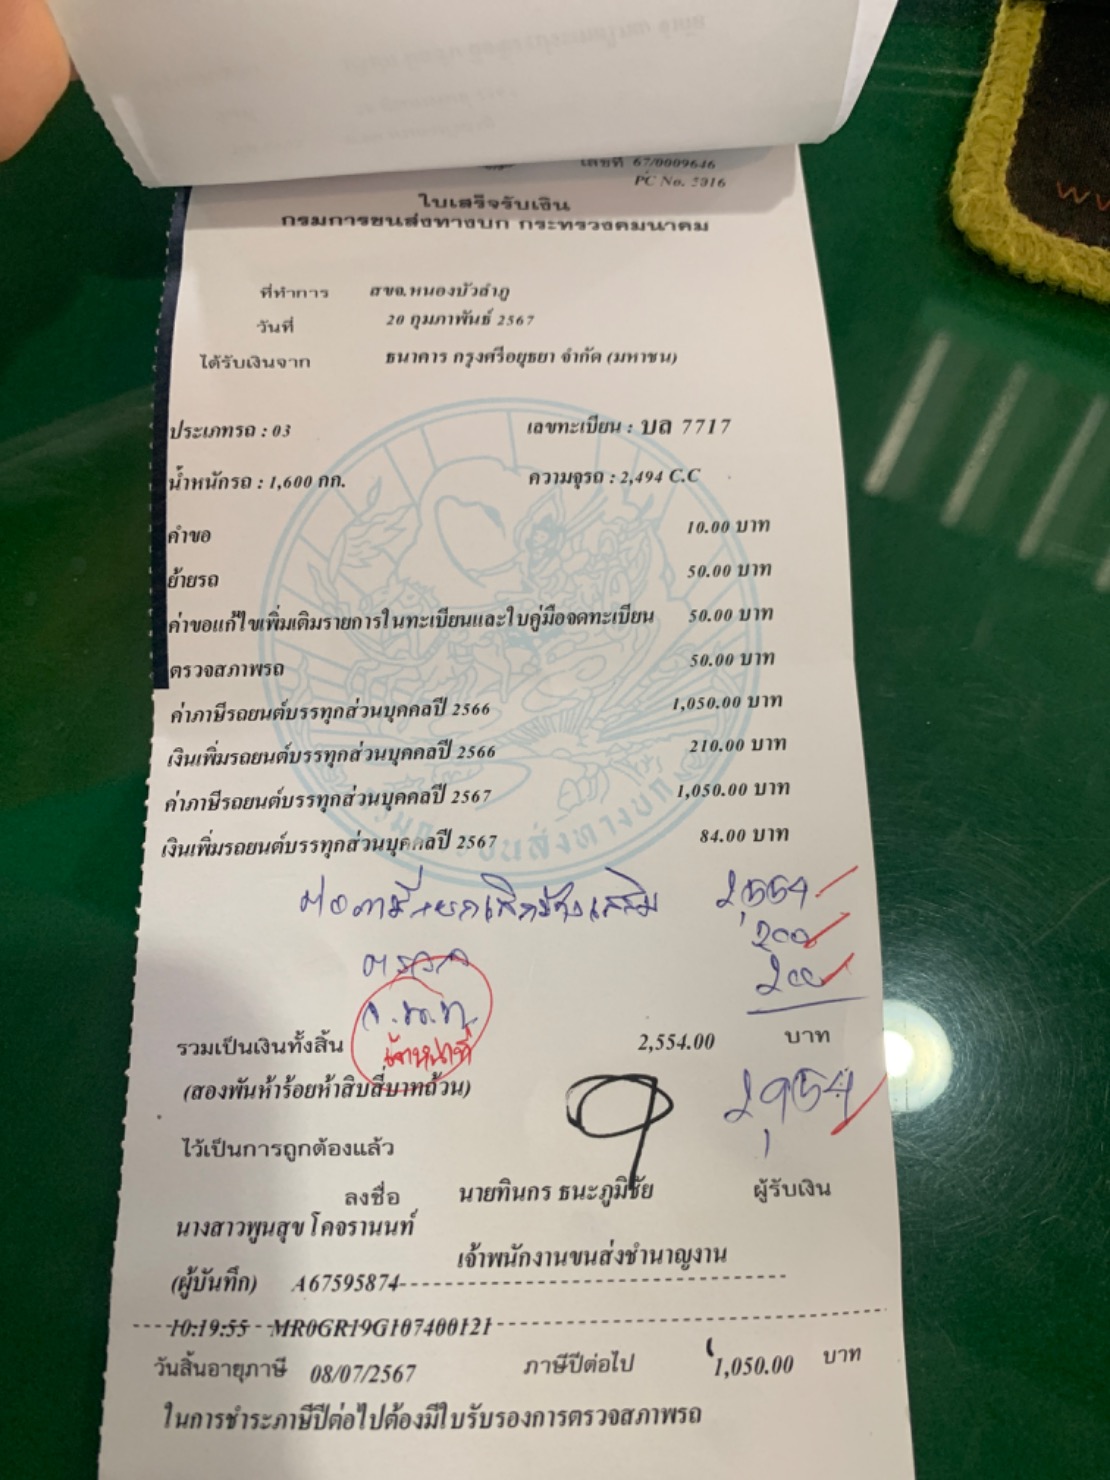 เลขที่ 67/0009646
PC No. 5916
ใบเสร็จรับเงิน
กรมการขนส่งทางบก กระทรวงคมนาคม
ที่ทำการ สขจ.หนองบัวลำภู
วันที่ 20 กุมภาพันธ์ 2567
ได้รับเงินจาก ธนาคาร กรุงศรีอยุธยา จำกัด (มหาชน)
ประเภทรถ : 03 เลขทะเบียน : บล 7717
น้ำหนักรถ : 1,600 กก. ความจุรถ : 2,494 C.C
คำขอ 10.00 บาท
ย้ายรถ 50.00 บาท
ค่าขอแก้ไขเพิ่มเติมรายการในทะเบียนและใบคู่มือจดทะเบียน 50.00 บาท
ตรวจสภาพรถ 50.00 บาท
ค่าภาษีรถยนต์บรรทุกส่วนบุคคลปี 2566 1,050.00 บาท
เงินเพิ่มรถยนต์บรรทุกส่วนบุคคลปี 2566 210.00 บาท
ค่าภาษีรถยนต์บรรทุกส่วนบุคคลปี 2567 1,050.00 บาท
เงินเพิ่มรถยนต์บรรทุกส่วนบุคคลปี 2567 84.00 บาท
กรมการขนส่งทางบก
2,554
200
ตรวจ 200
รวมเป็นเงินทั้งสิ้น 2,554.00 บาท
เจ้าหน้าที่
(สองพันห้าร้อยห้าสิบสี่บาทถ้วน) 2,954
ไว้เป็นการถูกต้องแล้ว
ลงชื่อ นายทินกร ธนะภูมิชัย ผู้รับเงิน
นางสาวพูนสุข โคจรานนท์
เจ้าพนักงานขนส่งชำนาญงาน
(ผู้บันทึก) A67595874
10:19:55 MR0GR19G107400121
วันสิ้นอายุภาษี 08/07/2567 ภาษีปีต่อไป 1,050.00 บาท
ในการชำระภาษีปีต่อไปต้องมีใบรับรองการตรวจสภาพรถ